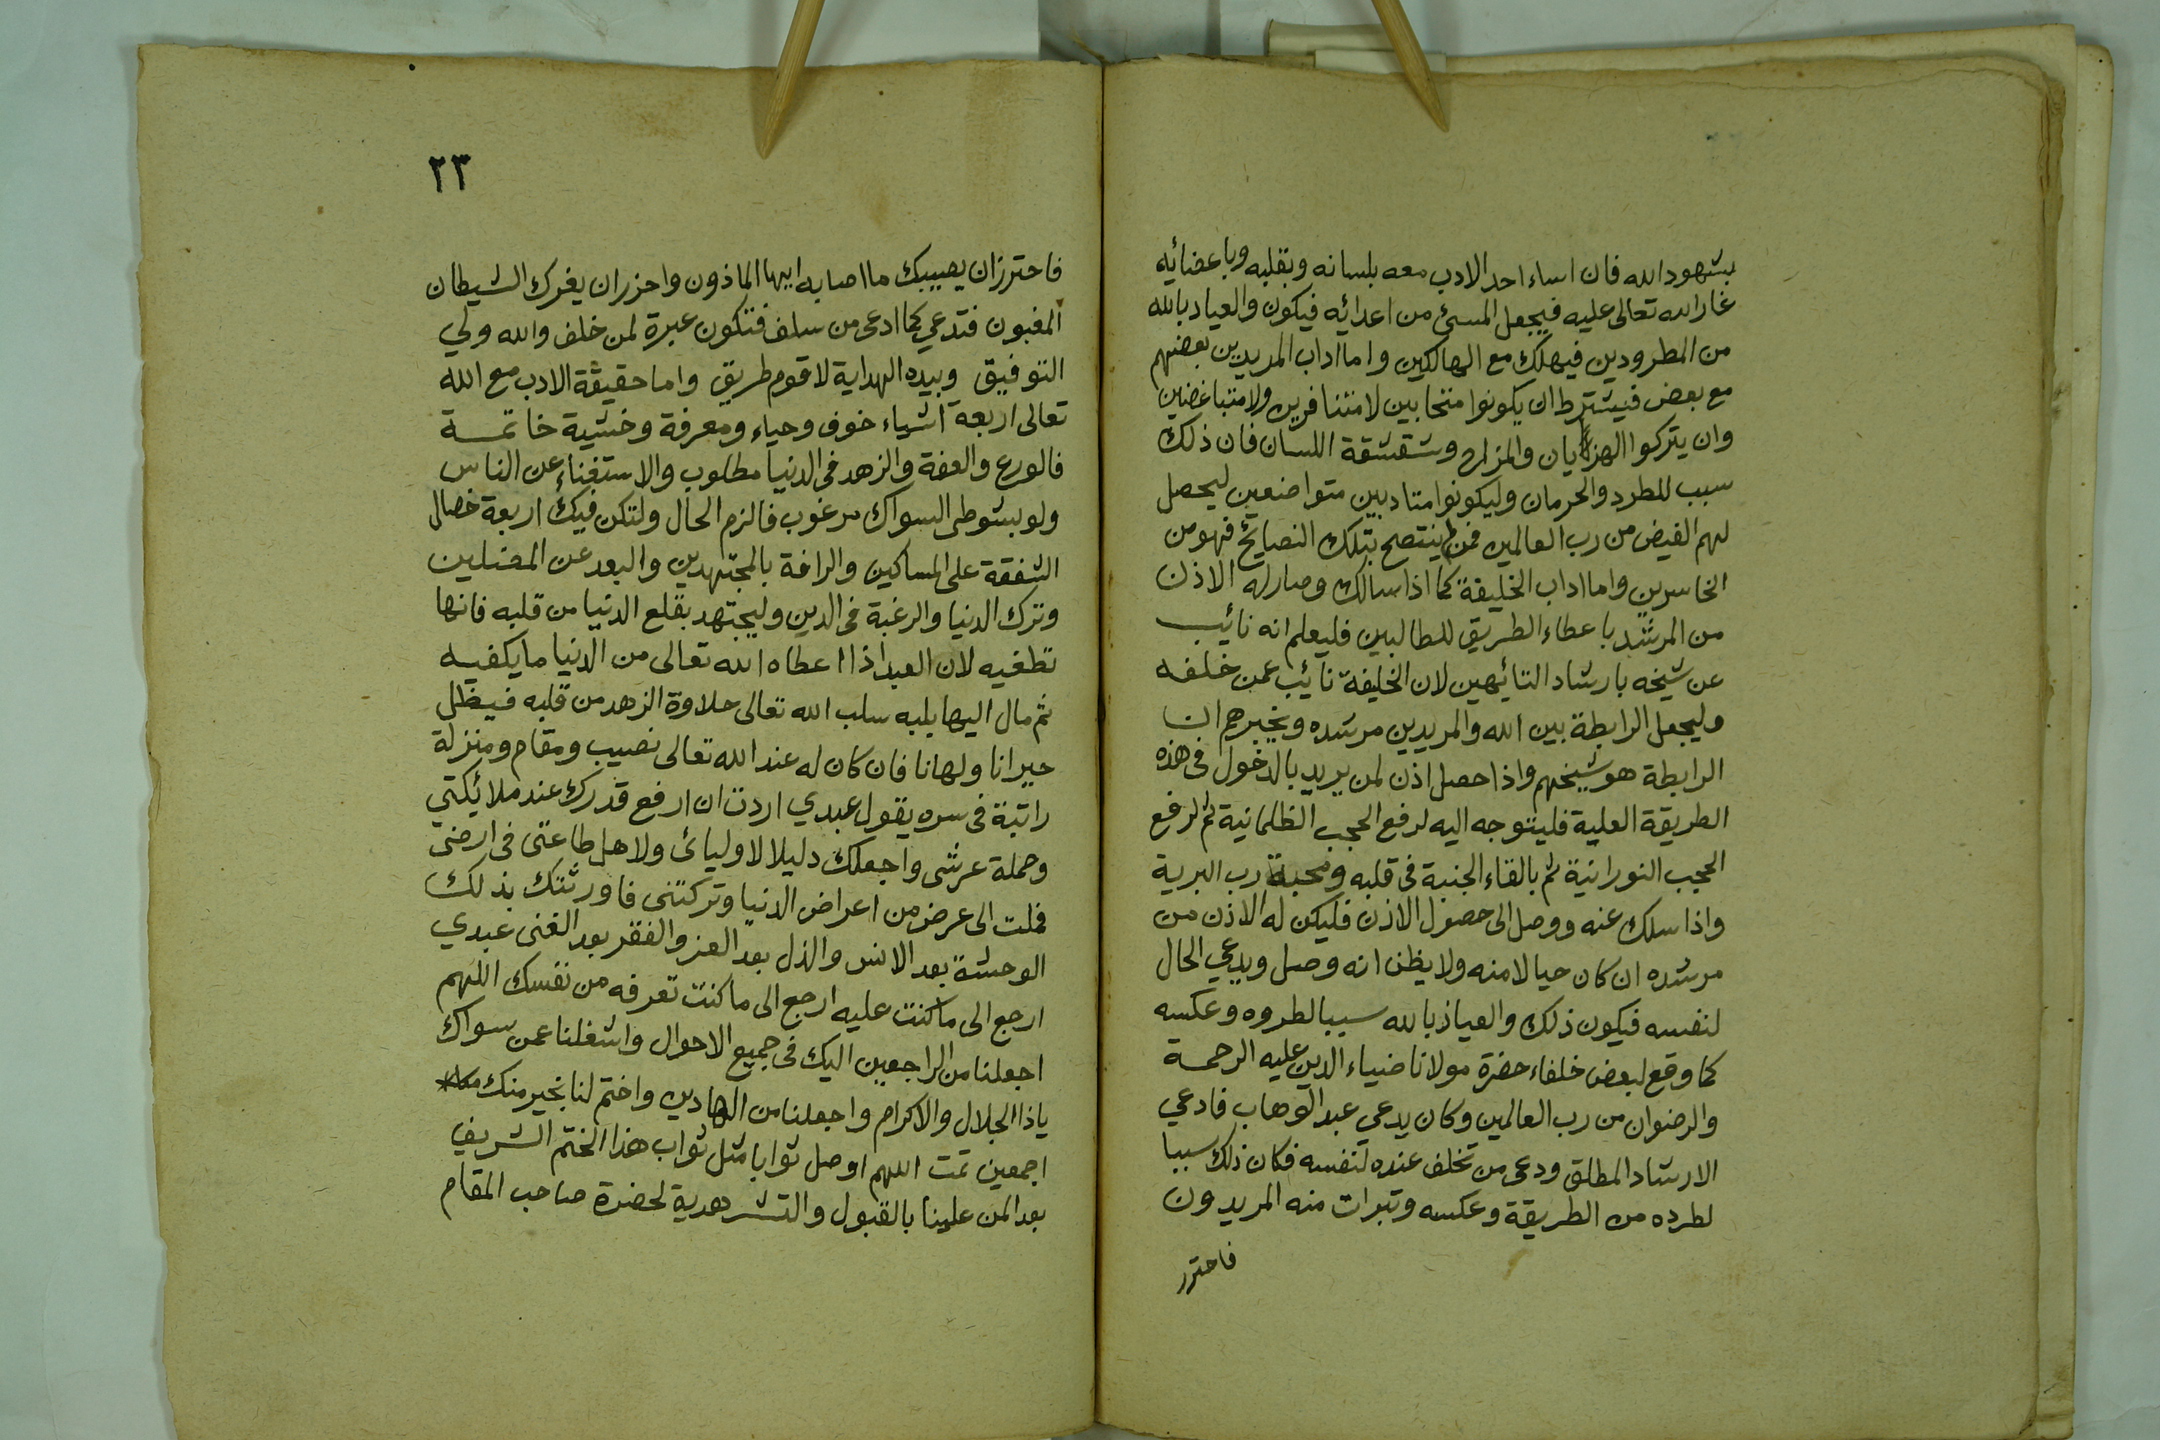 بشهود الله فان اساء احد الادب معه بلسانه وبقلبه وباعضائه
غار الله تعالى عليه فيجعل المسئ من اعدائه فيكون والعياد بالله
من المطرودين فيهلك مع الهالكين واما اداب المريدين بعضهم
مع بعض فيشترط ان يكونوا متحابين لا متنافرين ولا متباغضين
وان يتركوا الهزايان والمزاح وشقشقة اللسان فان ذلك
سبب للطرد والحرمان وليكونوا متادبين متواضعين ليحصل
لهم الفيض من رب العالمين فمن لم ينتصح بتلك النصايح فهو من
الخاسرين واما اداب الخليفة كما اذا سالك وصار له الاذن
من المرشد باعطاء الطريق للطالبين فليعلم انه نائب
عن شيخه بارشاد التائهين لان الخليفة نائب عمن خلفه
وليجعل الرابطة بين الله والمريدين مرشده ويخبرهم ان
الرابطة هو شيخهم واذا حصل اذن لمن يريد بالدخول في هذه
الطريقة العلية فليتوجه اليه لرفع الحجب الظلمانية ثم لرفع
الحجب النورانية ثم بالقاء الجنبة في قلبه ومحبة رب البرية
واذا سلك عنه ووصل الى حصول الاذن فليكن له الاذن من
مرشده ان كان حيا لا منه ولا يظن انه وصل ويدعي الحال
لنفسه فيكون ذلك والعياذ بالله سببا لطروه وعكسه
كما وقع لبعض خلفاء حضرة مولانا ضياء الدين عليه الرحمة
والرضوان من رب العالمين وكان يدعي عبد الوهاب فادعي
الارشاد المطلق ودعى من تخلف عنده لنفسه فكان ذلك سببا
لطرده من الطريقة وعكسه وتبرات منه المريدون
فاحترز
٢٣
فاحترز ان يصيبك ما اصابه ايها الماذون واحزر ان يغرك الشيطان
المغبون فتدعي كما ادعى من سلف فتكون عبرة لمن خلف والله ولي
التوفيق وبيده الهداية لاقوم طريق واما حقيقة الادب مع الله
تعالى اربعة اشياء خوف وحياء ومعرفة وخشية خاتمة
فالورع والعفة والزهد في الدنيا مطلوب والاستغناء عن الناس
ولو بشوطى السواك مرغوب فالزم الحال ولتكن فيك اربعة خصال
الشفقة على المساكين والرافة بالمجتهدين والبعد عن المضلين
وترك الدنيا والرغبة في الدين وليجتهد بقلع الدنيا من قلبه فانها
تطغيه لان العبد اذا اعطاه الله تعالى من الدنيا ما يكفيه
ثم مال اليها يلبه سلب الله تعالى حلاوة الزهد من قلبه فيظل
حيرانا ولهانا فان كان له عند الله تعالى نصيب ومقام ومنزلة
راتبة في سره يقول عبدي اردت ان ارفع قدرك عند ملائكتي
وحملة عرشى واجعلك دليلا لاوليائ ولاهل طاعتى في ارضى
فملت الى عرض من اعراض الدنيا وتركتنى فاورثتك بذلك
الوحشة بعد الانس والذل بعد العز والفقر بعد الغنى عبدي
ارجع الى ما كنت عليه ارجع الى ما كنت تعرفه من نفسك اللهم
اجعلنا من الراجعين اليك في جميع الاحوال واشغلنا عمن سواك
ياذا الجلال والاكرام واجعلنا من الهادين واختم لنا بخير منك
اجمعين تمت اللهم اوصل ثوابا مثل ثواب هذا الختم الشريف
بعد المن علينا بالقبول والتشر هدية لحضرة صاحب المقام